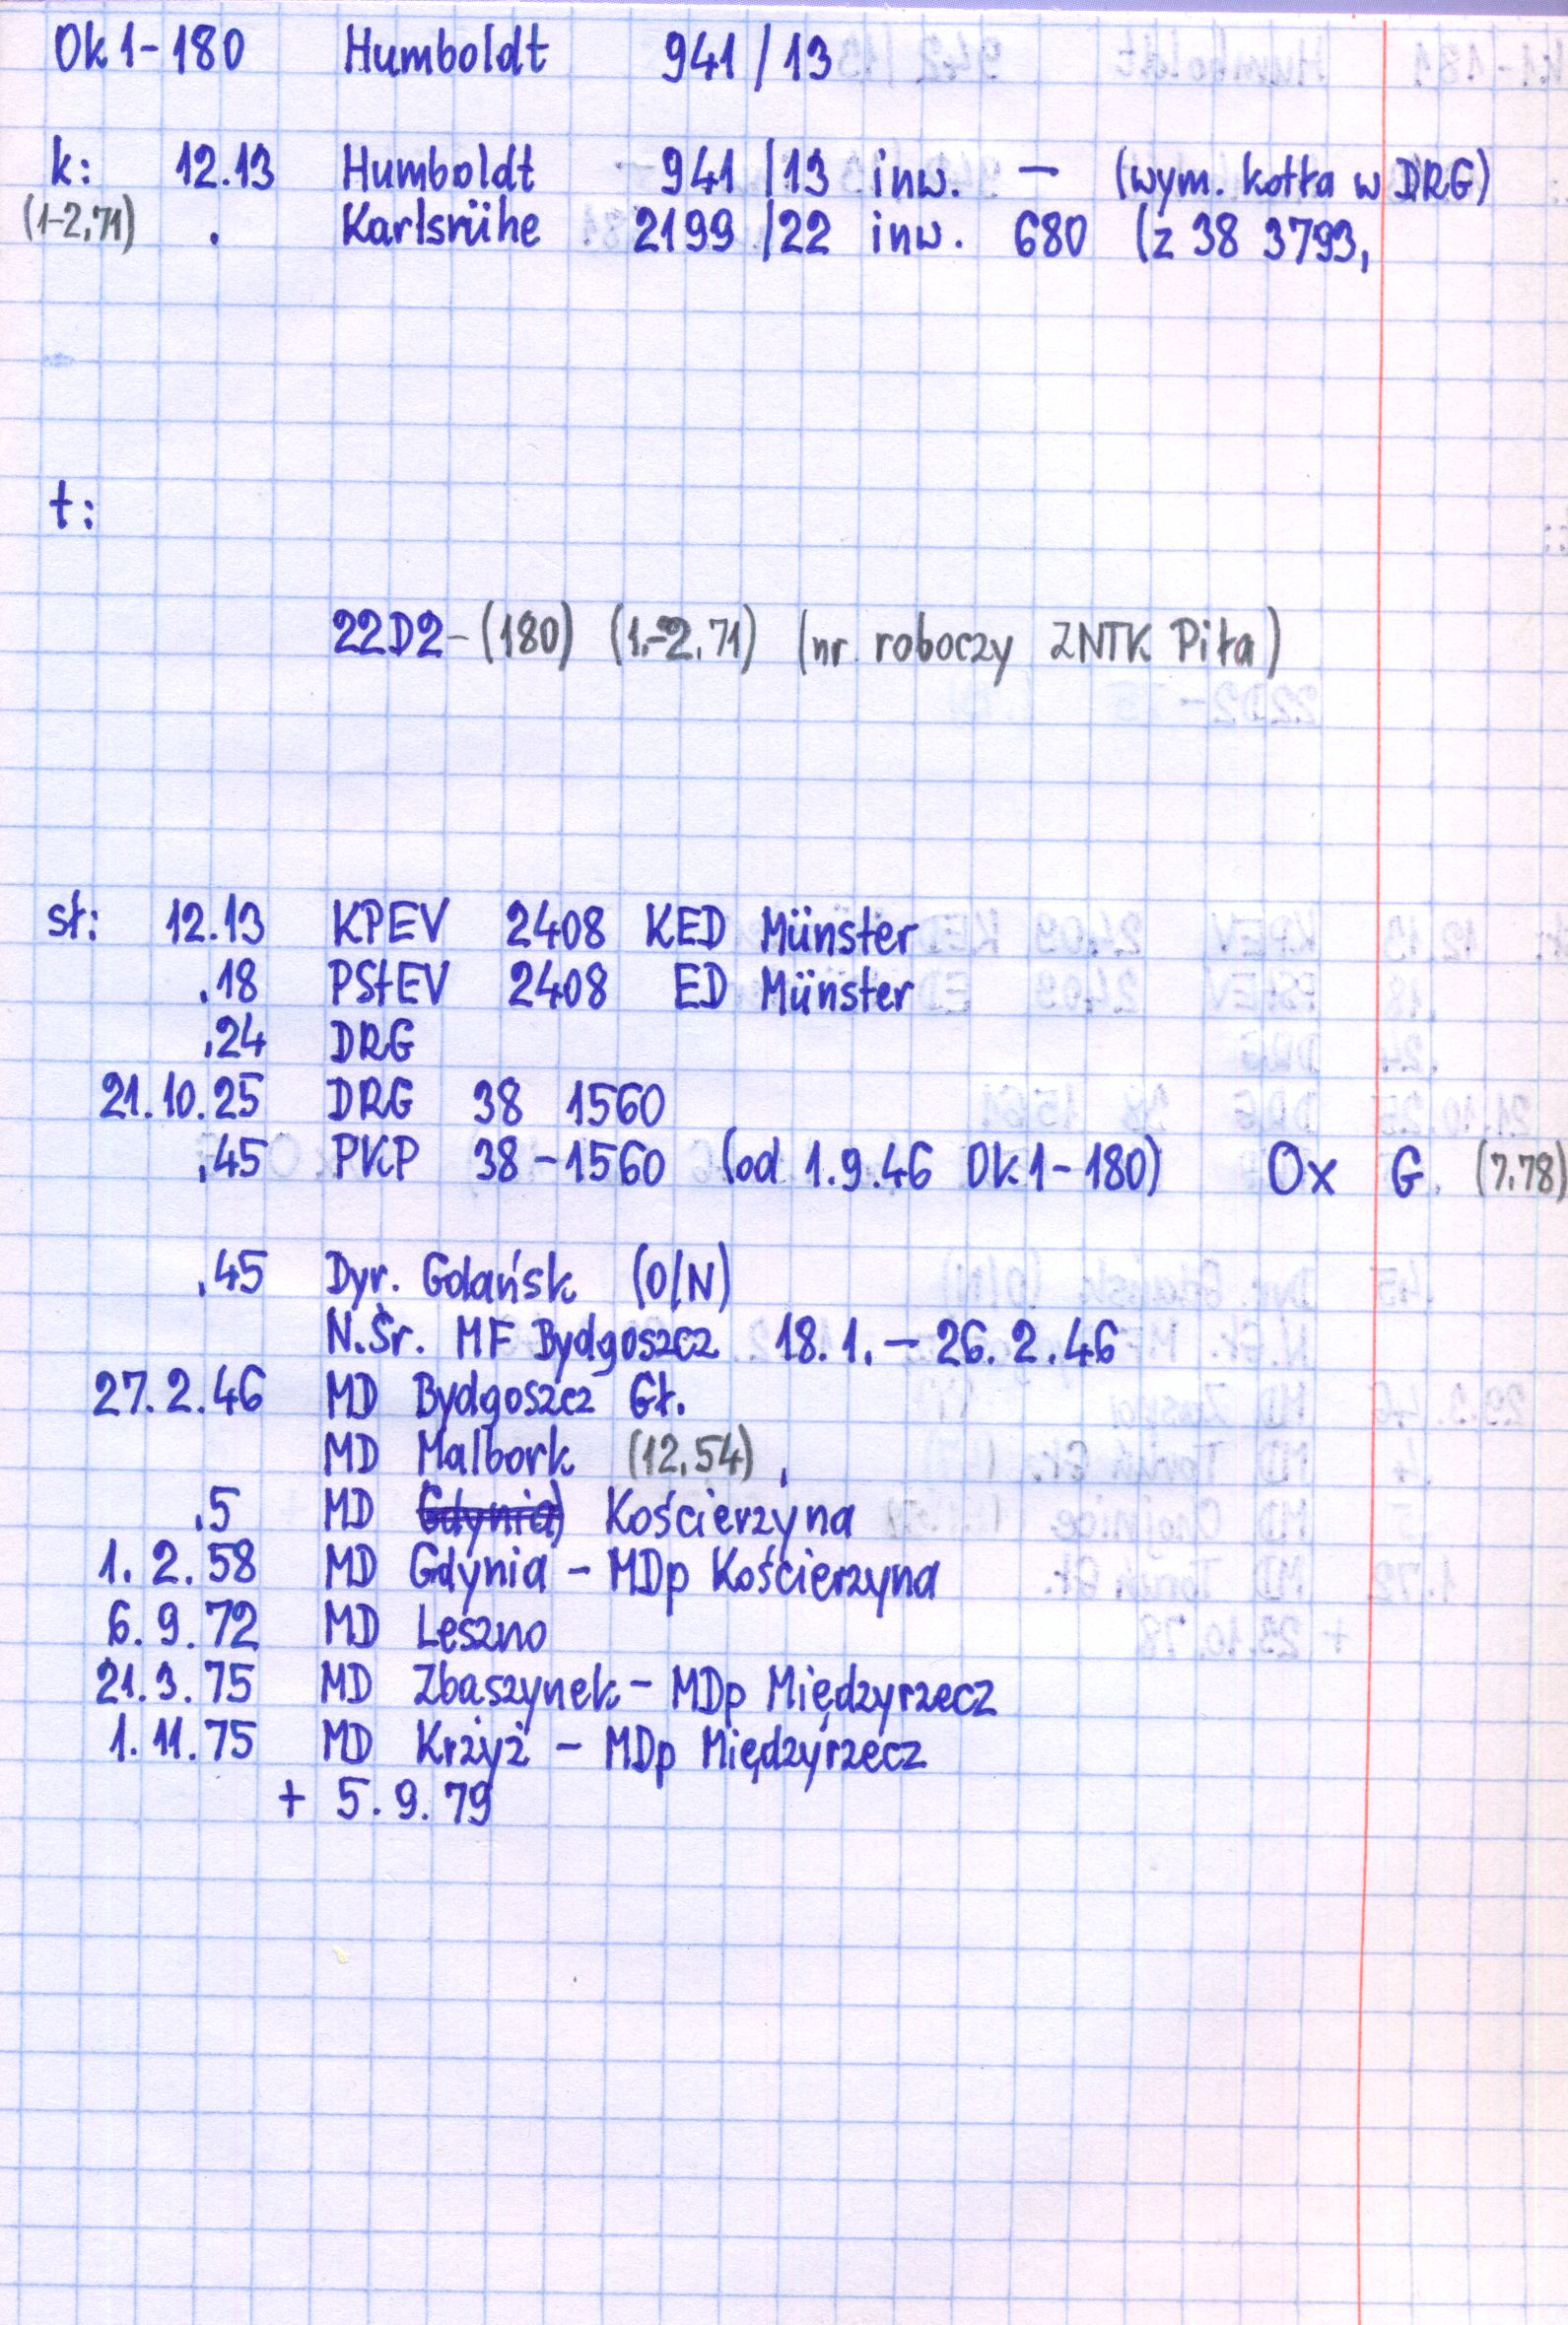 Ok1-180 Humboldt 941/13
k: 12.13 Humboldt 941/13 inw. — (wym. kotła w DRG)
(1-2,71) . Karlsrühe 2199/22 inw. 680 (z 38 3793,
t:
22D2-(180) (1.-2.71) (nr roboczy ZNTK Piła)
st: 12.13 KPEV 2408 KED Münster
.18 PStEV 2408 ED Münster
.24 DRG
21.10.25 DRG 38 1560
.45 PKP 38-1560 (od 1.9.46 Ok1-180) Ox G. (7.78)
.45 Dyr. Gdańsk (O/N)
N.Śr. MF Bydgoszcz 18.1.-26.2.46
27.2.46 MD Bydgoszcz Gł.
MD Malbork (12.54),
.5 MD Gdynia) Kościerzyna
1.2.58 MD Gdynia - MDp Kościerzyna
6.9.72 MD Leszno
21.3.75 MD Zbaszynek - MDp Międzyrzecz
1.11.75 MD Krzyż - MDp Międzyrzecz
+ 5.9.79